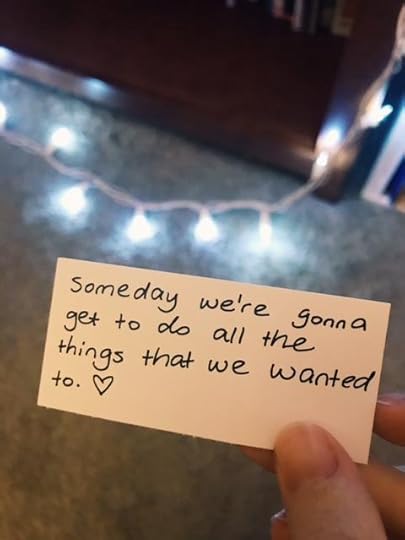 Someday we're gonna
get to do all the
things that we wanted
to. ♡